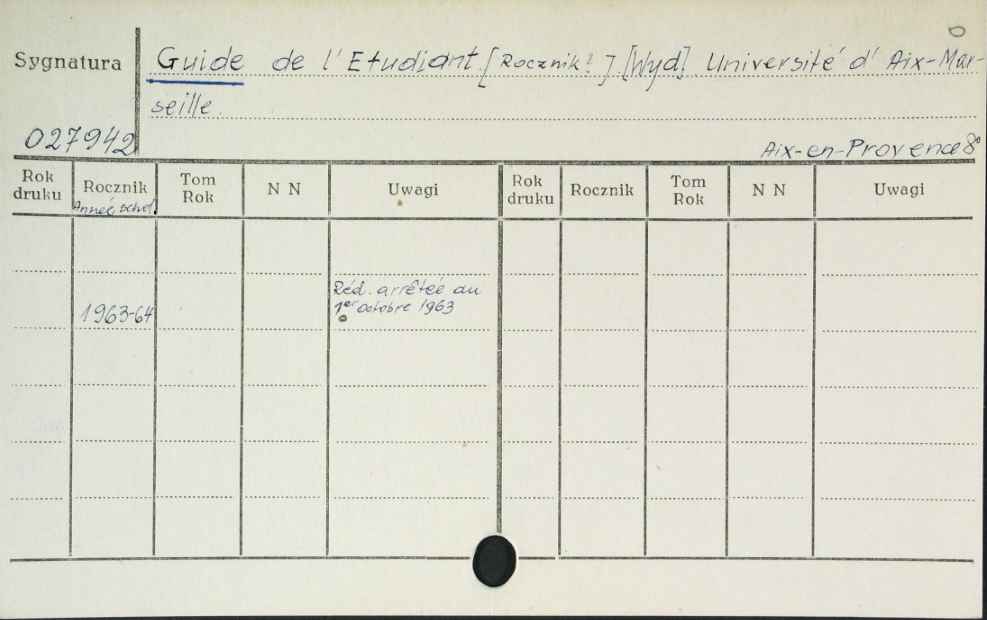 0
Sygnatura
Guide de l'Etudiant [Rocznik? ] [Wyd] Université d' Aix-Mar-
seille.
027942
Aix-en-Provence 8°
Rok druku Rocznik Tom Rok N N Uwagi Rok druku Rocznik Tom Rok N N Uwagi
Anneé schol.
Réd. arrêtée au
1963-64 1er octobre 1963